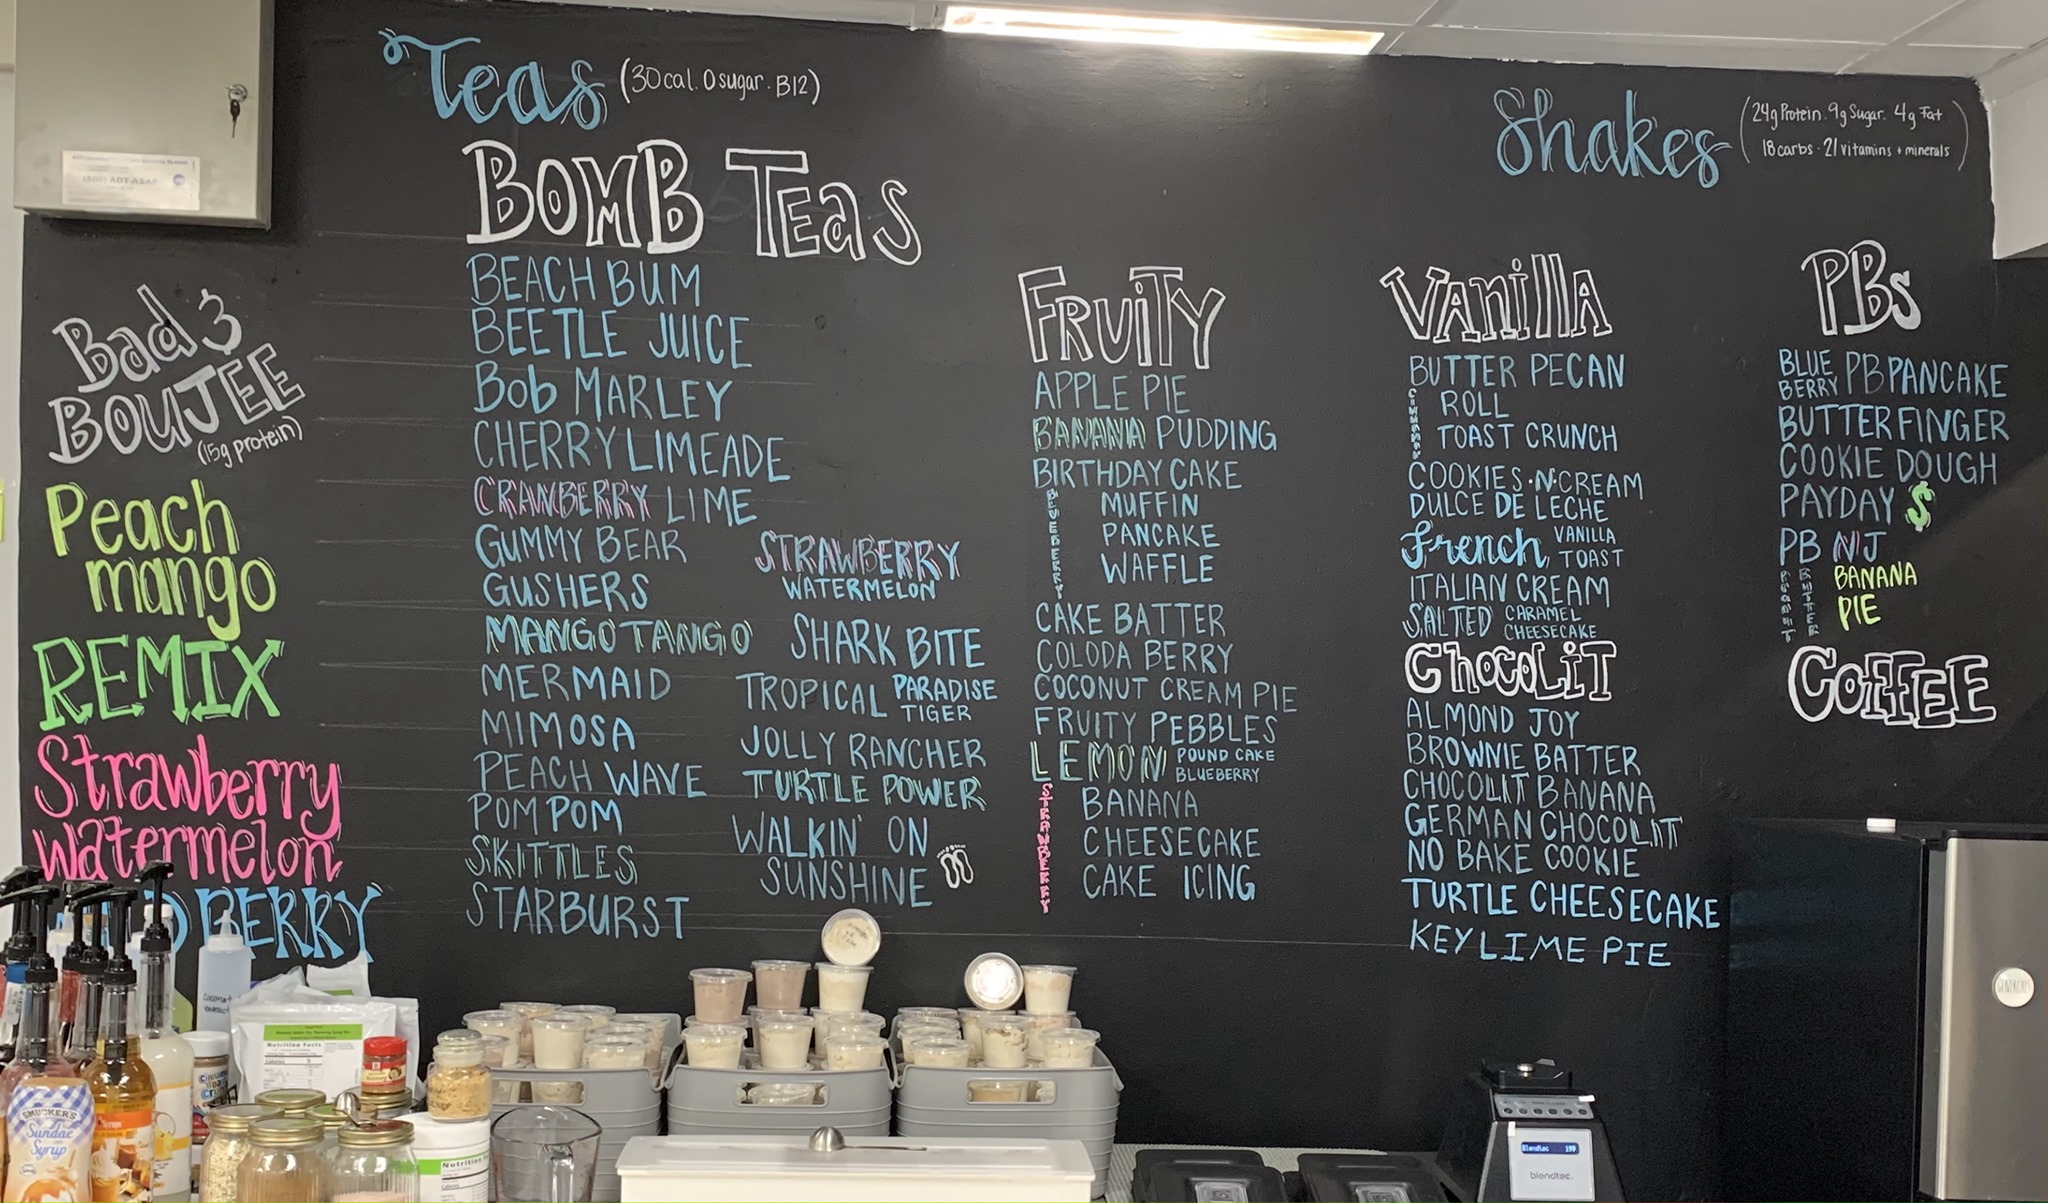 Teas (30cal. 0sugar. B12)
BOMB TEaS
BEACH BUM
BEETLE JUICE
Bob MARLEY
CHERRY LIMEADE
CRANBERRY LIME
GUMMY BEAR
GUSHERS
MANGO TANGO
MERMAID
MIMOSA
PEACH WAVE
POM POM
SKITTLES
STARBURST
STRAWBERRY
WATERMELON
SHARK BITE
TROPICAL PARADISE
TIGER
JOLLY RANCHER
TURTLE POWER
WALKIN' ON
SUNSHINE
Bad &
BOUJEE
(15g protein)
Peach
mango
REMIX
Strawberry
watermelon
BERRY
Shakes (24g Protein. 9g Sugar. 4g Fat
18 carbs · 21 vitamins + minerals)
FRUiTY
APPLE PIE
BANANA PUDDING
BIRTHDAY CAKE
BLUEBERRY
MUFFIN
PANCAKE
WAFFLE
CAKE BATTER
COLODA BERRY
COCONUT CREAM PIE
FRUITY PEBBLES
LEMON POUND CAKE
BLUEBERRY
STRAWBERRY
BANANA
CHEESECAKE
CAKE ICING
Vanilla
BUTTER PECAN
CINNAMON
ROLL
TOAST CRUNCH
COOKIES·N·CREAM
DULCE DE LECHE
French VANILLA
TOAST
ITALIAN CREAM
SALTED CARAMEL
CHEESECAKE
ChocoLiT
ALMOND JOY
BROWNIE BATTER
CHOCOLIT BANANA
GERMAN CHOCOLIT
NO BAKE COOKIE
TURTLE CHEESECAKE
KEY LIME PIE
PBs
BLUE
BERRY PB PANCAKE
BUTTERFINGER
COOKIE DOUGH
PAYDAY $
PB N J
PEANUT
BUTTER
BANANA
PIE
COFFEE
(800) ADT-ASAP
Coconut
extract
Nutrition Facts
SMUCKER'S
Sundae
Syrup
Nutrition
Blendtec 199
blendtec